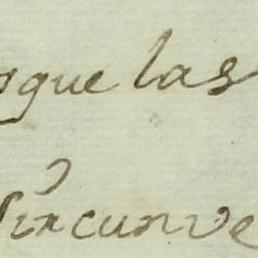 que las
Circunve